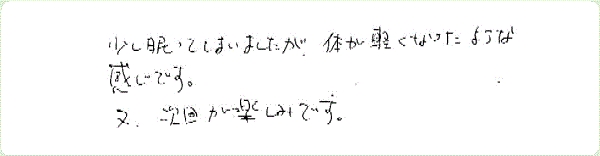 少し眠ってしまいましたが、体が軽くなったような
感じです。
又、次回が楽しみです。